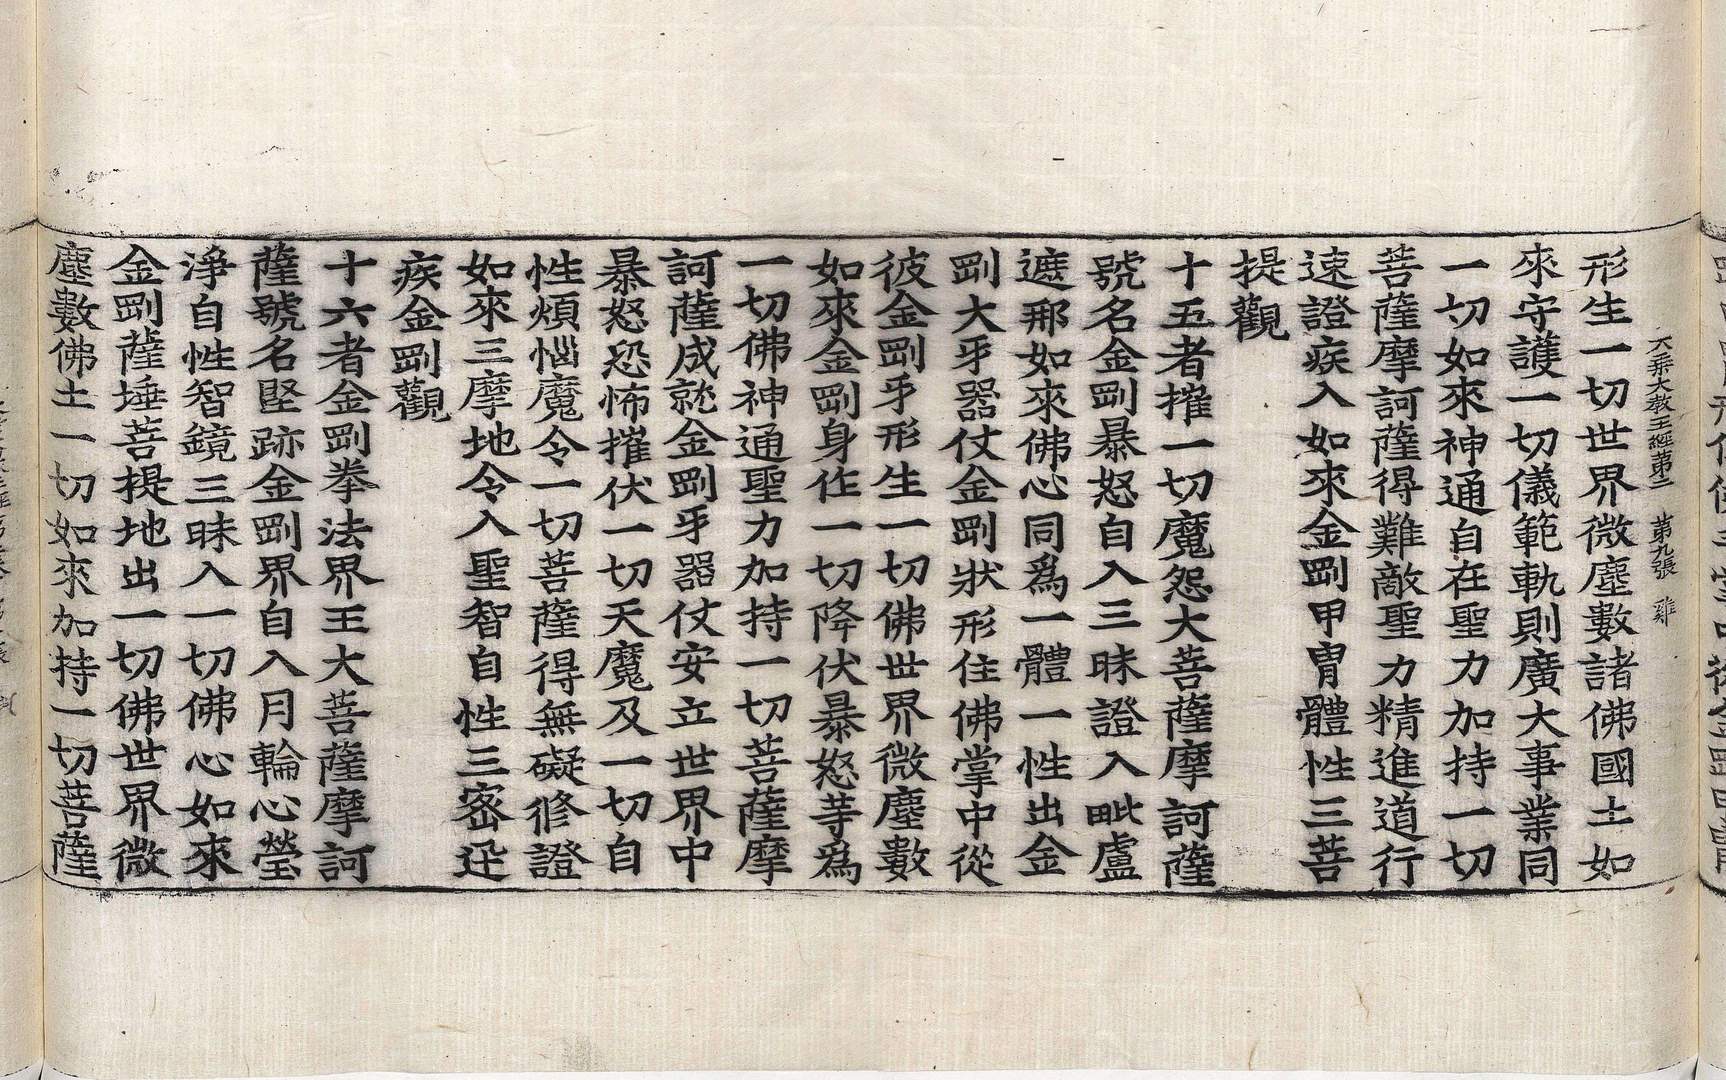 大乘大教王經第二　第九張　雞
形生一切世界微塵數諸佛國土如
來守護一切儀範軌則廣大事業同
一切如來神通自在聖力加持一切
菩薩摩訶薩得難敵聖力精進道行
速證疾入如來金剛甲冑體性三菩
提觀
十五者摧一切魔怨大菩薩摩訶薩
號名金剛暴怒自入三昧證入毗盧
遮那如來佛心同爲一體一性出金
剛大牙器仗金剛狀形住佛掌中從
彼金剛牙形生一切佛世界微塵數
如來金剛身作一切降伏暴怒等爲
一切佛神通聖力加持一切菩薩摩
訶薩成就金剛牙器仗安立世界中
暴怒恐怖摧伏一切天魔及一切自
性煩惱魔令一切菩薩得無礙修證
如來三摩地令入聖智自性三密迅
疾金剛觀
十六者金剛拳法界王大菩薩摩訶
薩號名堅跡金剛界自入月輪心瑩
淨自性智鏡三昧入一切佛心如來
金剛薩埵菩提地出一切佛世界微
塵數佛土一切如來加持一切菩薩